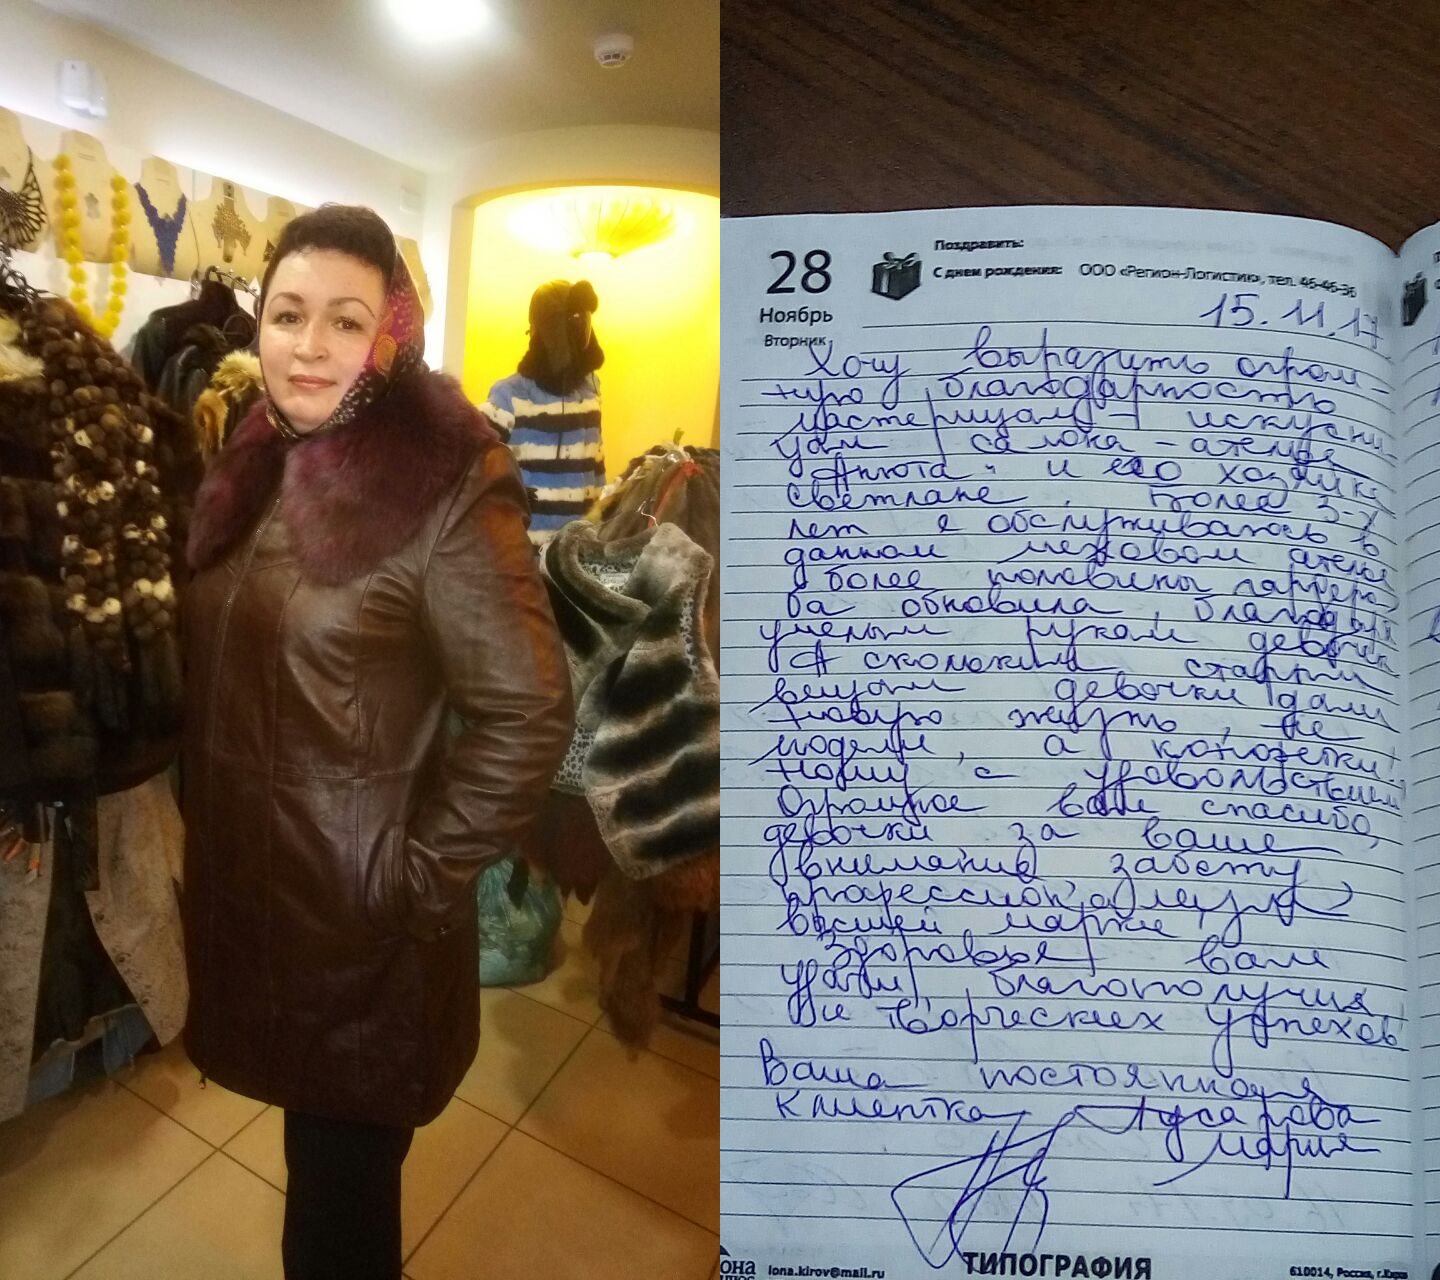 28
Ноябрь
Вторник
Поздравить:
С днем рождения: ООО «Регион-Логистик», тел. 46-46-36
15.11.17
Хочу выразить огром-
ную благодарность
мастерицам - искусни
цам салона - ателье
"Анюта" и его хозяйке
Светлане. Более 3-х
лет я обслуживаюсь в
данном меховом ателье
и более половины гардеро
ба обновила, благодаря
умелым рукам девочек
А скольким старым
вещам девочки дали
новую жизнь, не
модели, а конфетки!
Ношу с удовольствием
Огромное вам спасибо,
девочки за ваше
внимание заботу
профессионализм
высшей марки,
Здоровья вам
удачи, благополучия
и творческих успехов
Ваша постоянная
клиентка Гусарова
Мария
lona.kirov@mail.ru
ТИПОГРАФИЯ
610014, Россия, г.Киров